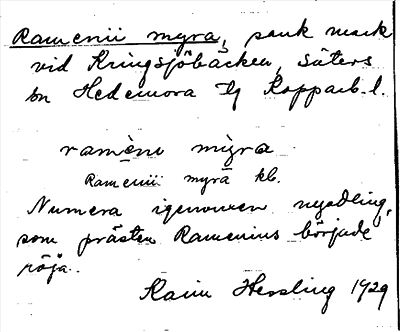 Ramenii myra, sank mark
vid Kringsjöbäcken, Säters
sn Hedemora tg Kopparb. l.
ramène mìɡra
Ramenii myra kb.
Numera igenvuxen nyodling,
som prästen Ramenius började
röja.
Karin Hessling 1929